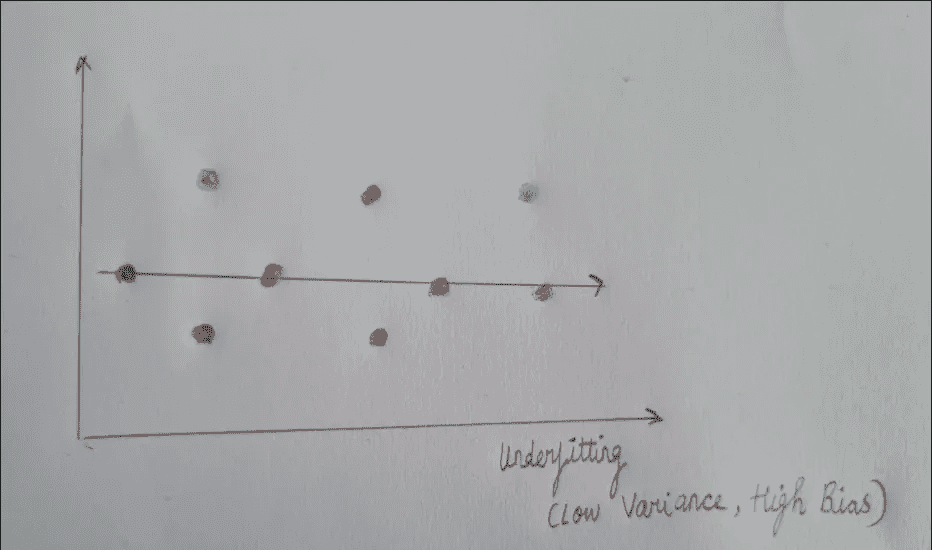 Underfitting
(Low Variance, High Bias)